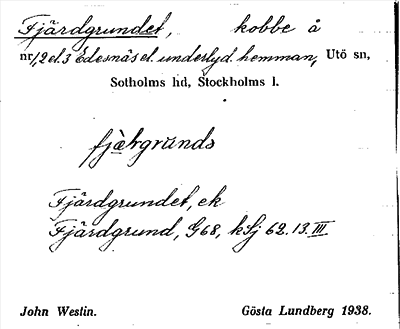 Fjärdgrundet, kobbe å
nr 1,2 el. 3 Edesnäs el. underlyd. hemman, Utö sn,
Sotholms hd, Stockholms l.
fjæ̀rgrúnds
Fjärdgrundet, ek
Fjärdgrund, G68, kSj 62.13.III
John Westin. Gösta Lundberg 1938.